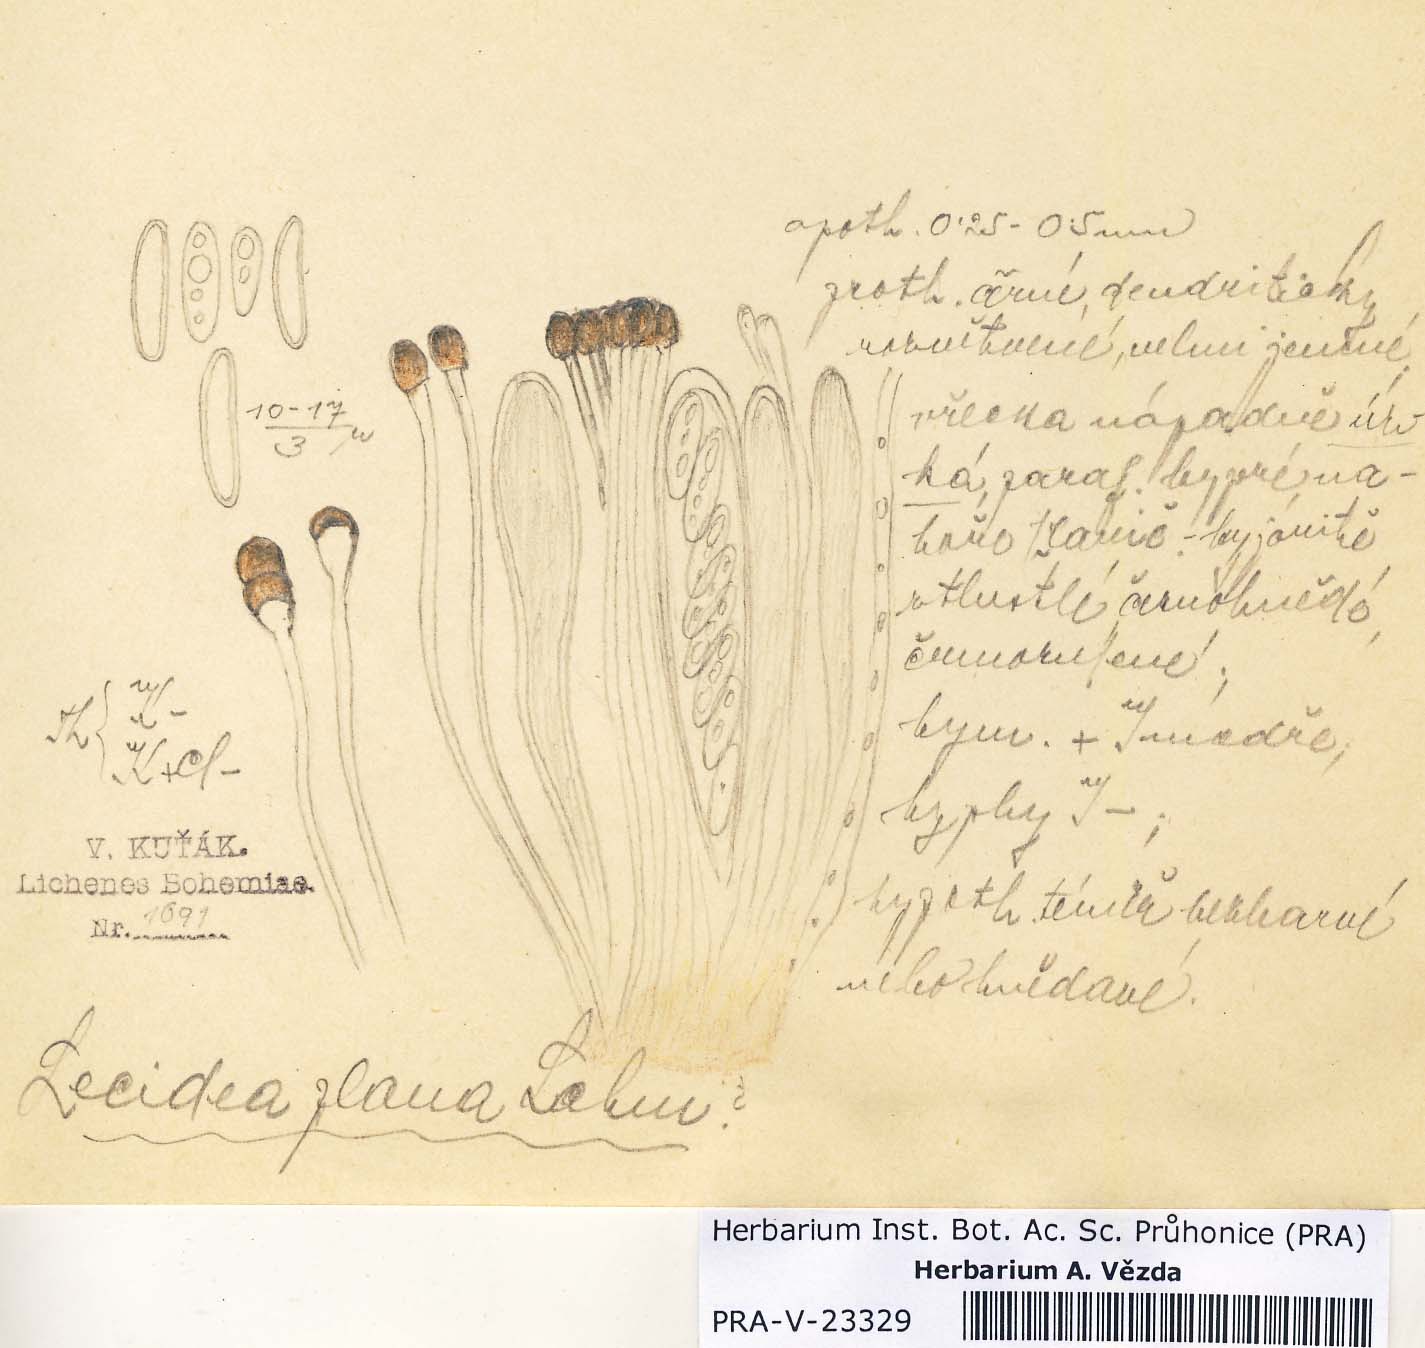 apoth. 0·25 - 0·5 mm
proth. černé, dendriticky
rozvětvené, velmi jemné,
vřecka nápadně úz-
ká, paraf. hypré, na-
hoře kyjovitě
ztlustlé, černohnědé,
černozelené;
hym. + J modře;
hyphy J - ;
hypoth. téměř bezbarvé
nebo hnědavé.
10-17
3 μ
Th { K -
K + Cl -
V. KUŤÁK.
Lichenes Bohemiae.
Nr. 1691
Lecidea plana Lahm.?
Herbarium Inst. Bot. Ac. Sc. Průhonice (PRA)
Herbarium A. Vězda
PRA-V-23329